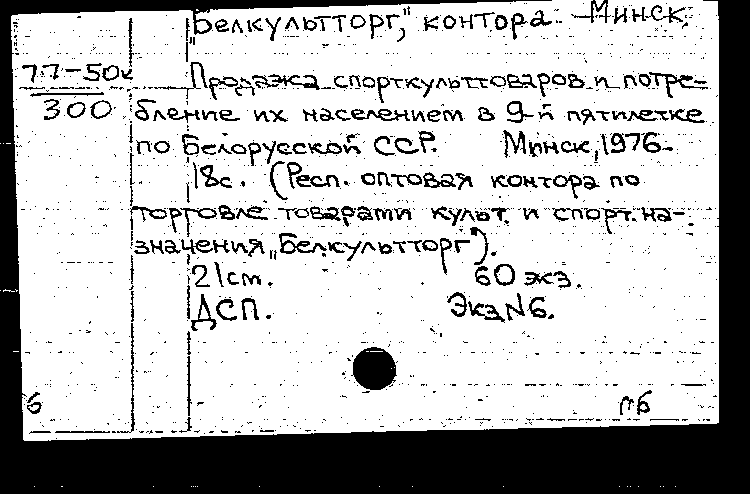 „Белкультторг," контора. Минск.
77-50к
300
Продажа спорткульттоваров и потре-
бление их населением в 9-й пятилетке
по Белорусской ССР. Минск, 1976.
18с. (Респ. оптовая контора по
торговле товарами культ. и спорт. на-
значения „Белкультторг").
21см. 60 экз.
ДСП. Экз. №6.
б пб